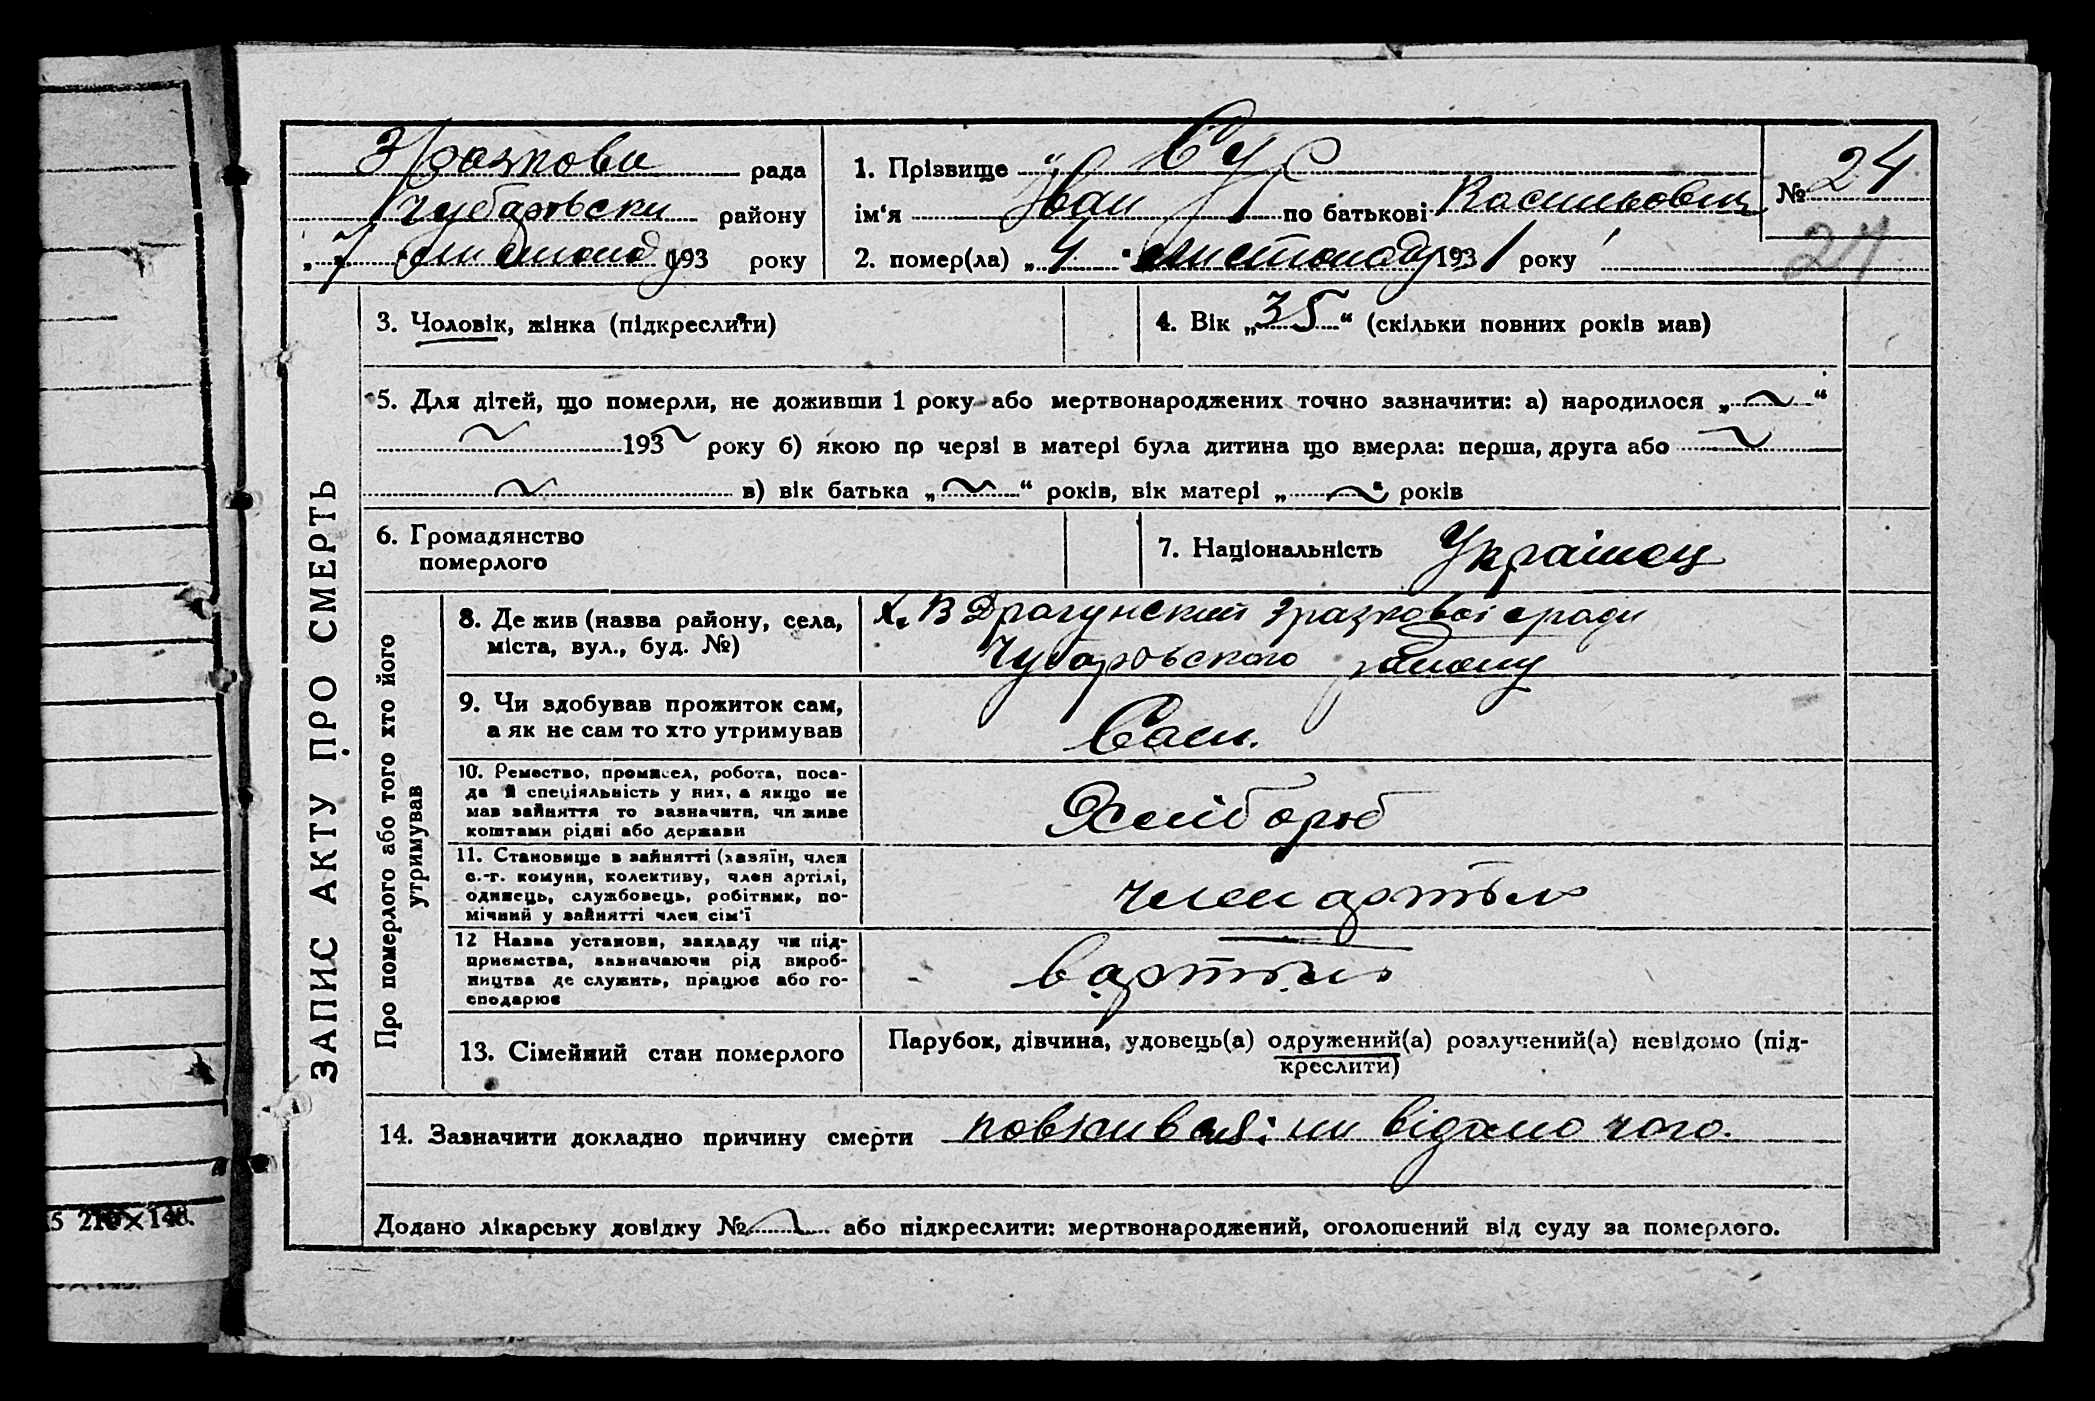 Зразкова рада
Чубарьски району
„ 7 " листопаду 193 року
1. Прізвище Сус
ім'я Іван по батькові Васильовиц
2. помер(ла) „ 4 " листопаду 1931 року
№ 24
24
3. Чоловік, жінка (підкреслити)
4. Вік „ 35 “ (скільки повних років мав)
5. Для дітей, що померли, не доживши 1 року або мертвонароджених точно зазначити: а) народилося „ ~ “
~ 193 ~ року б) якою по черзі в матері була дитина що вмерла: перша, друга або ~
~ в) вік батька „ ~ “ років, вік матері „ ~ " років
6. Громадянство
померлого
7. Національність Українец
ЗАПИС АКТУ ПРО СМЕРТЬ
Про померлого або того хто його
утримував
8. Де жив (назва району, села,
міста, вул., буд. №)
х. В Драгунский Зразковоі сради
Чубаровского району
9. Чи здобував прожиток сам,
а як не сам то хто утримував
Сам.
10. Ремество, промисел, робота, поса-
да й спеціяльність у них, а якщо не
мав зайняття то зазначити, чи живе
коштами рідні або держави
Хлібороб
11. Становище в зайнятті (хазяїн, член
с.-г. комуни, колективу, член артілі,
одинець, службовець, робітник, по-
мічний у зайнятті член сім'ї
член артьли
12 Назва установи, закладу чи під-
приємства, зазначаючи рід вироб-
ництва де служить, працює або го-
сподарює
в артьли
13. Сімейний стан померлого
Парубок, дівчина, удовець(а) одружений(а) розлучений(а) невідомо (під-
креслити)
14. Зазначити докладно причину смерти ни відамо чого.
Додано лікарську довідку № ~ або підкреслити: мертвонароджений, оголошений від суду за померлого.
5 210×148.